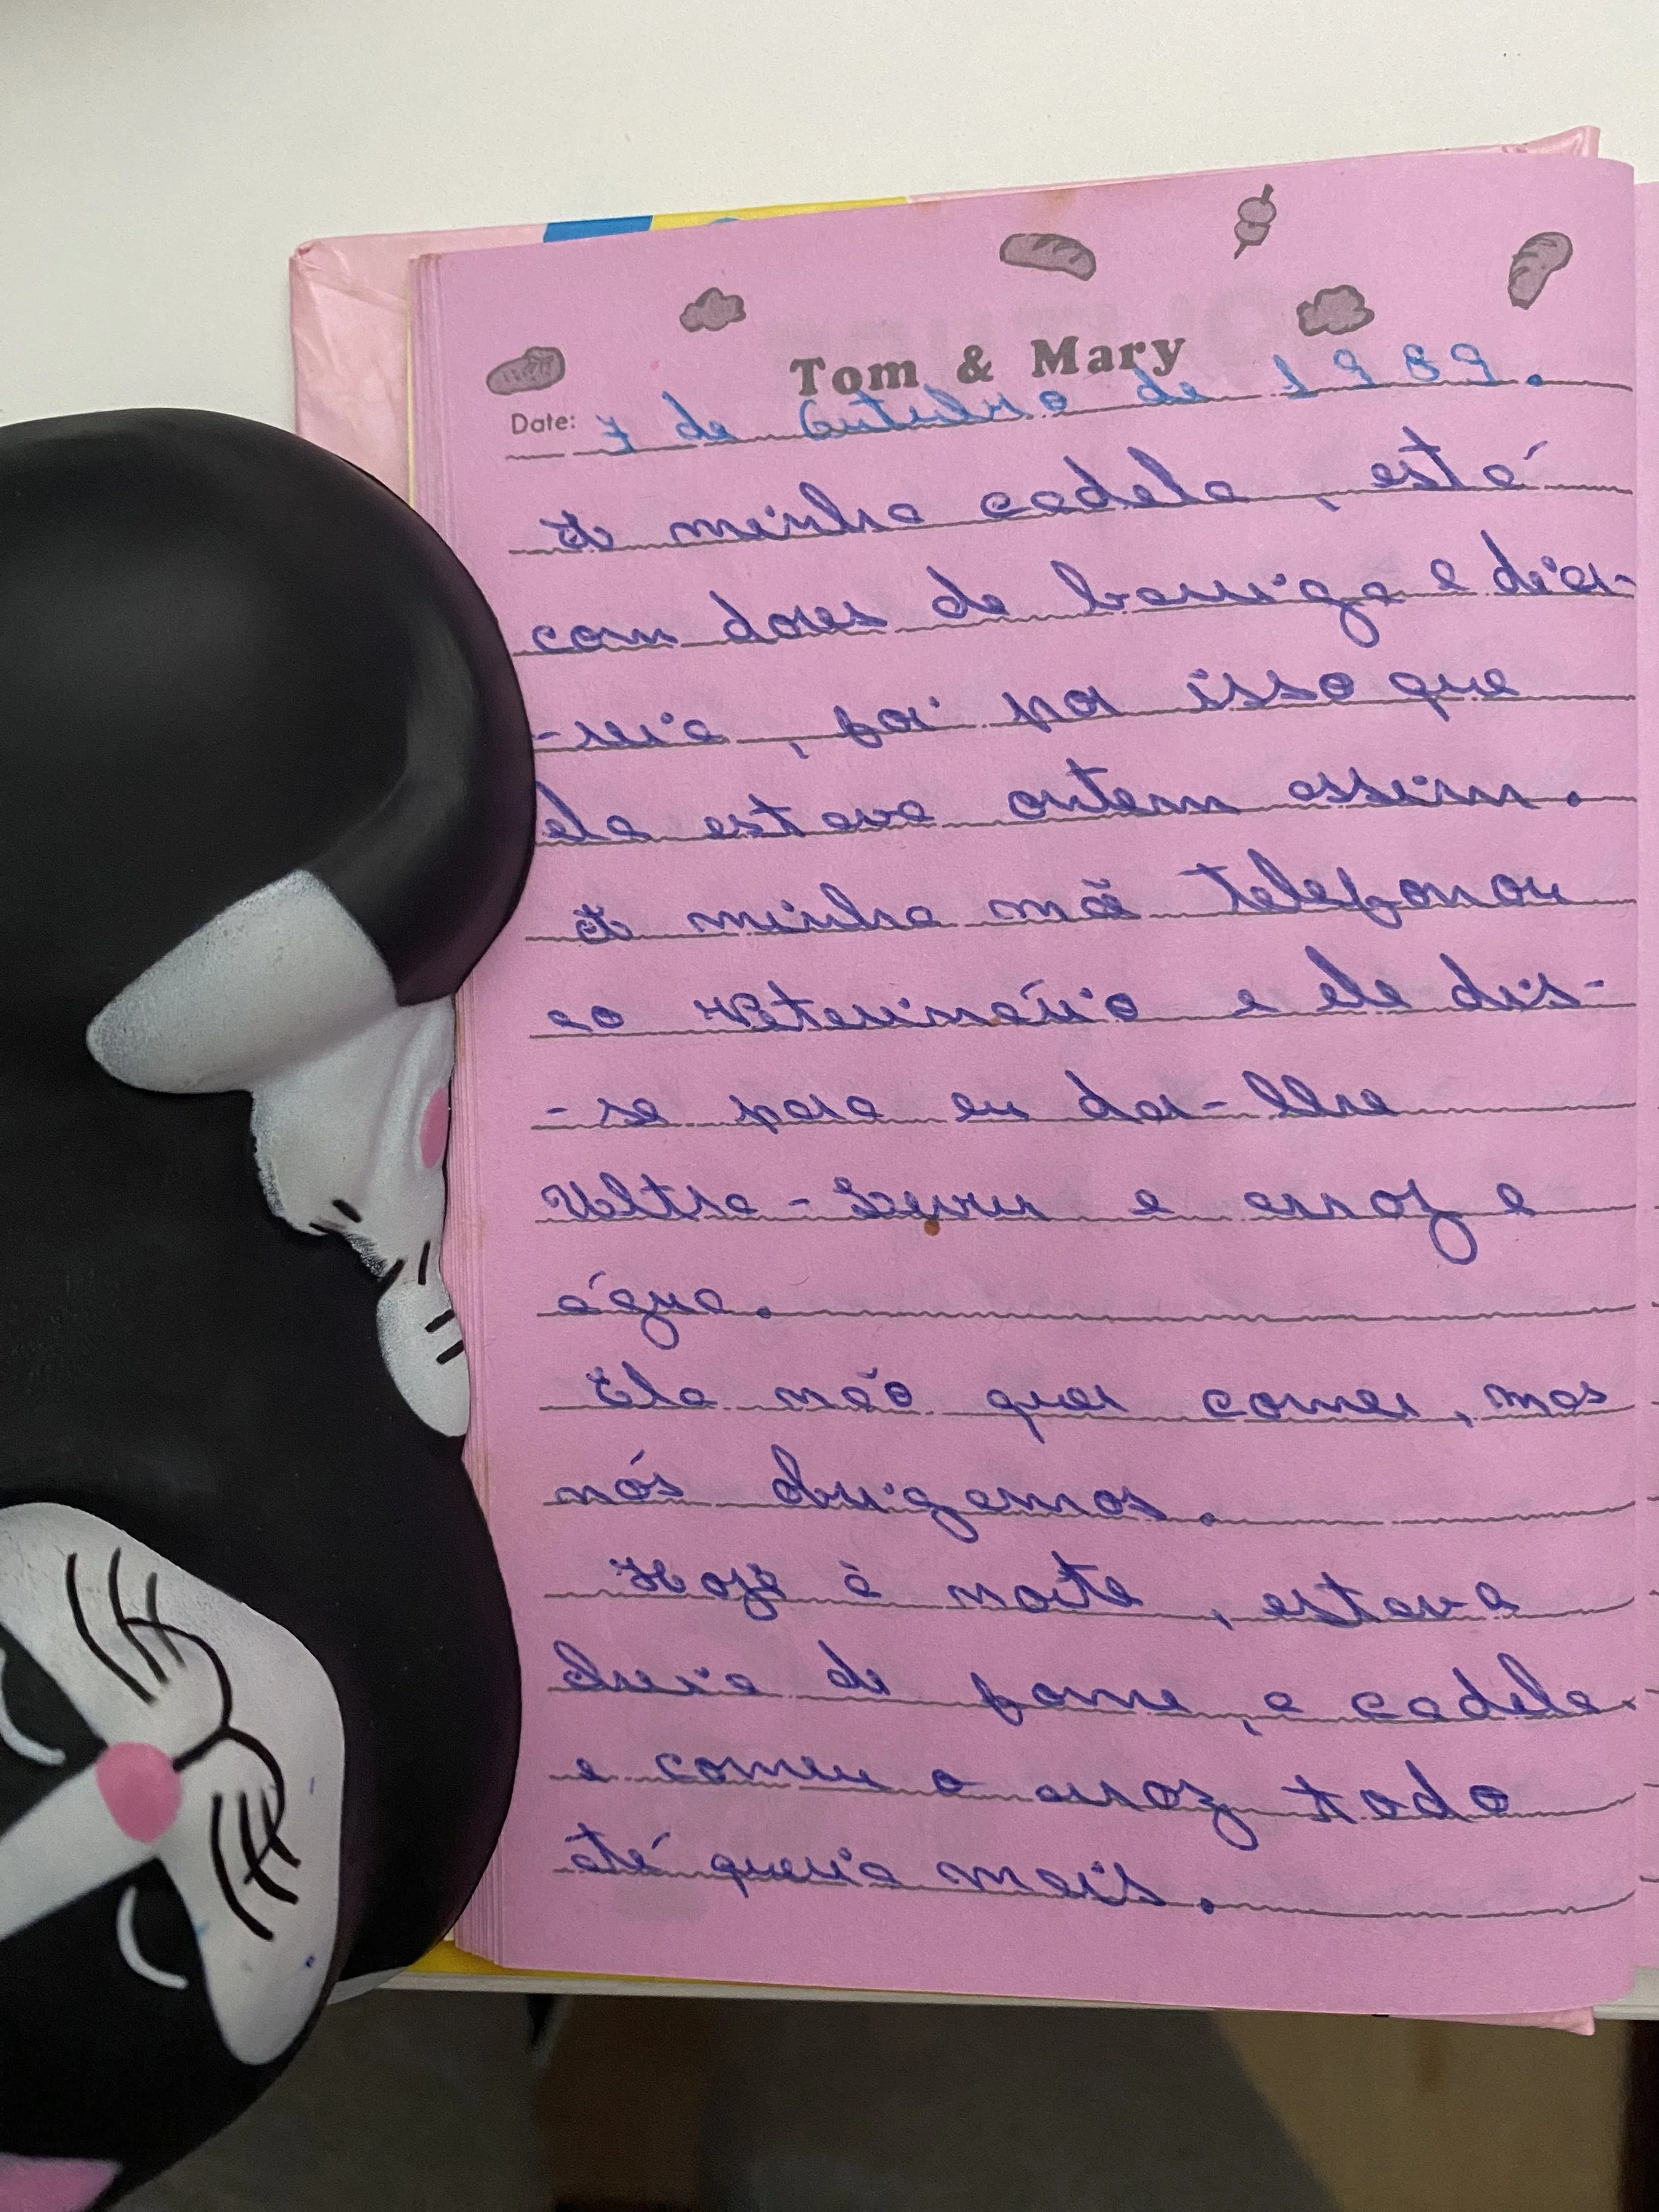 Tom & Mary
Date: 7 de Outubro de 1989.
A minha cadela, está
com dores de barriga e diar-
-reia, foi por isso que
ela estava ontem assim.
A minha mãe telefonou
ao veterinário e ele dis-
-se para eu dar-lhe
Ultra-Levur e arroz e
água.
Ela não quer comer, mas
nós obrigamos.
Hoje à noite, estava
cheia de fome, a cadela
e comeu o arroz todo
até queria mais.